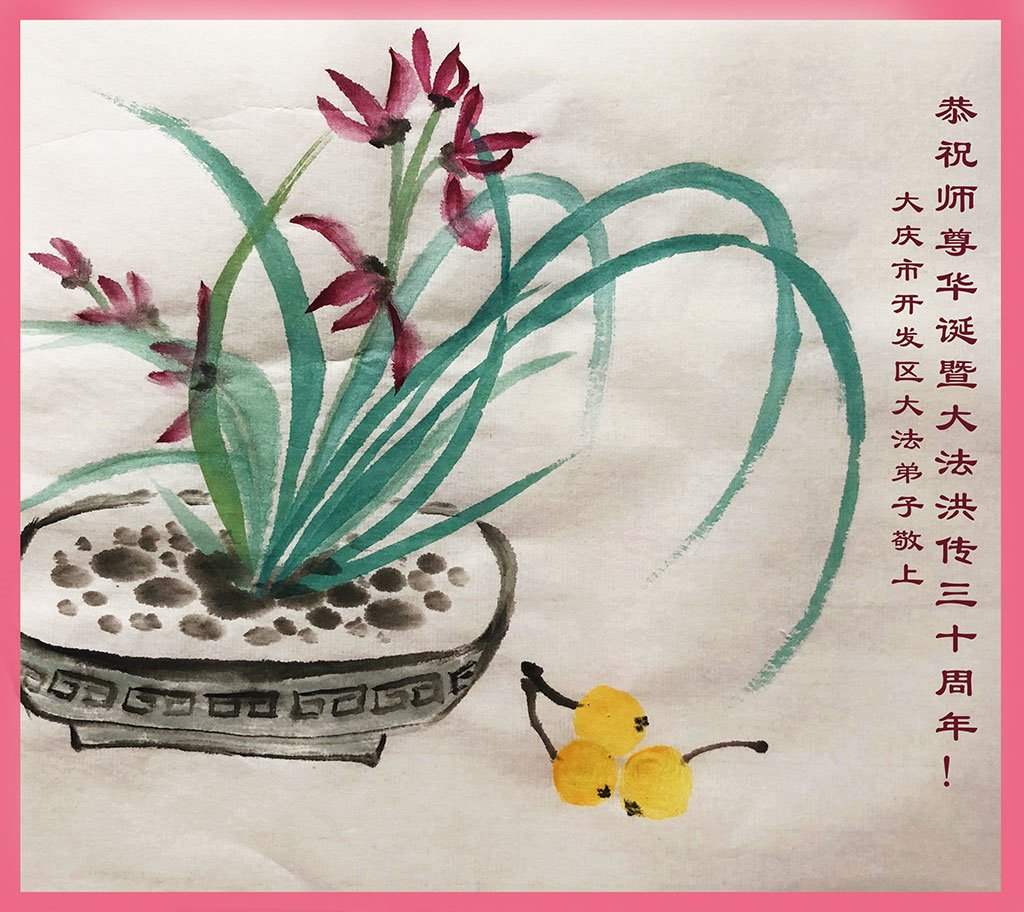 恭祝师尊华诞暨大法洪传三十周年！
大庆市开发区大法弟子敬上